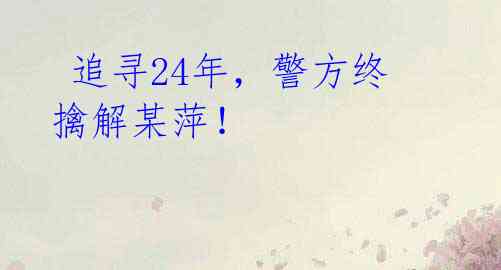 追寻24年，警方终
擒解某萍！